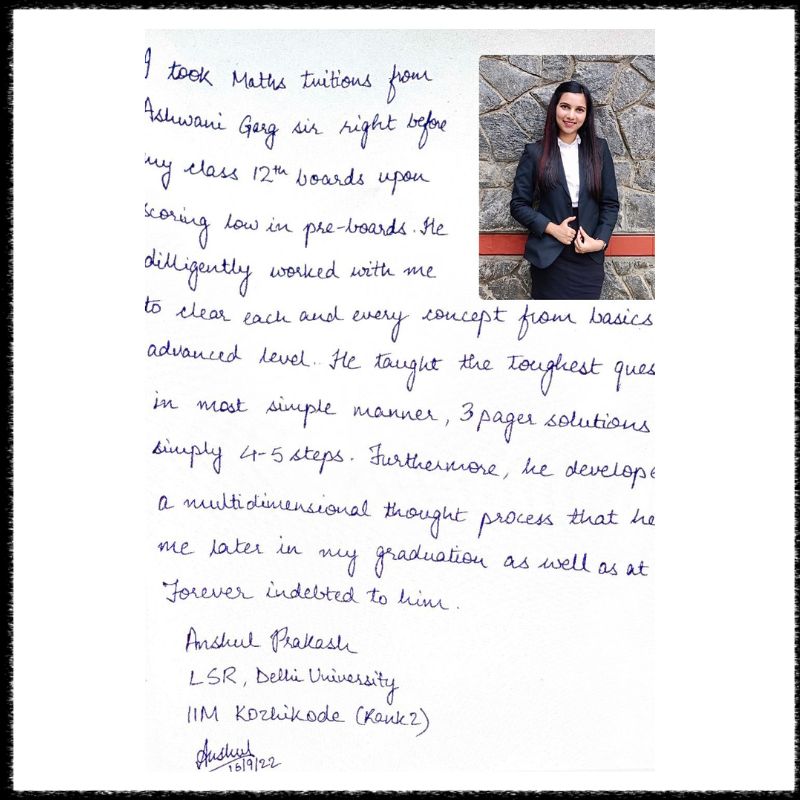 I took Maths tuitions from
Ashwani Garg sir right before
my class 12th boards upon
scoring low in pre-boards. He
dilligently worked with me
to clear each and every concept from basics
advanced level. He taught the toughest ques
in most simple manner, 3 pager solutions
simply 4-5 steps. Furthermore, he develope
a multidimensional thought process that he
me later in my graduation as well as at
Forever indebted to him.
Anshul Prakash
LSR, Delhi University
IIM Kozhikode (Rank 2)
Anshul
15/9/22